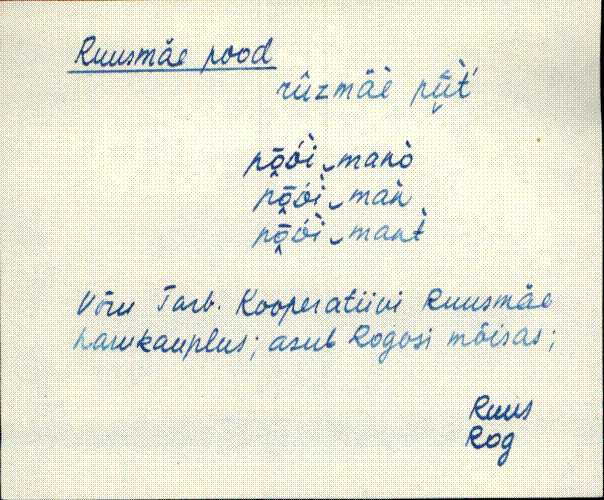 Ruusmäe pood
rûzmäè pi̮ì̮t́
pȭ̭ói‿manò
pȭ̭ói‿màn
pȭ̭ói‿mant̀
Võru Tarb. Kooperatiivi Ruusmäe
harukauplus; asub Rogosi mõisas;
Ruus
Rog